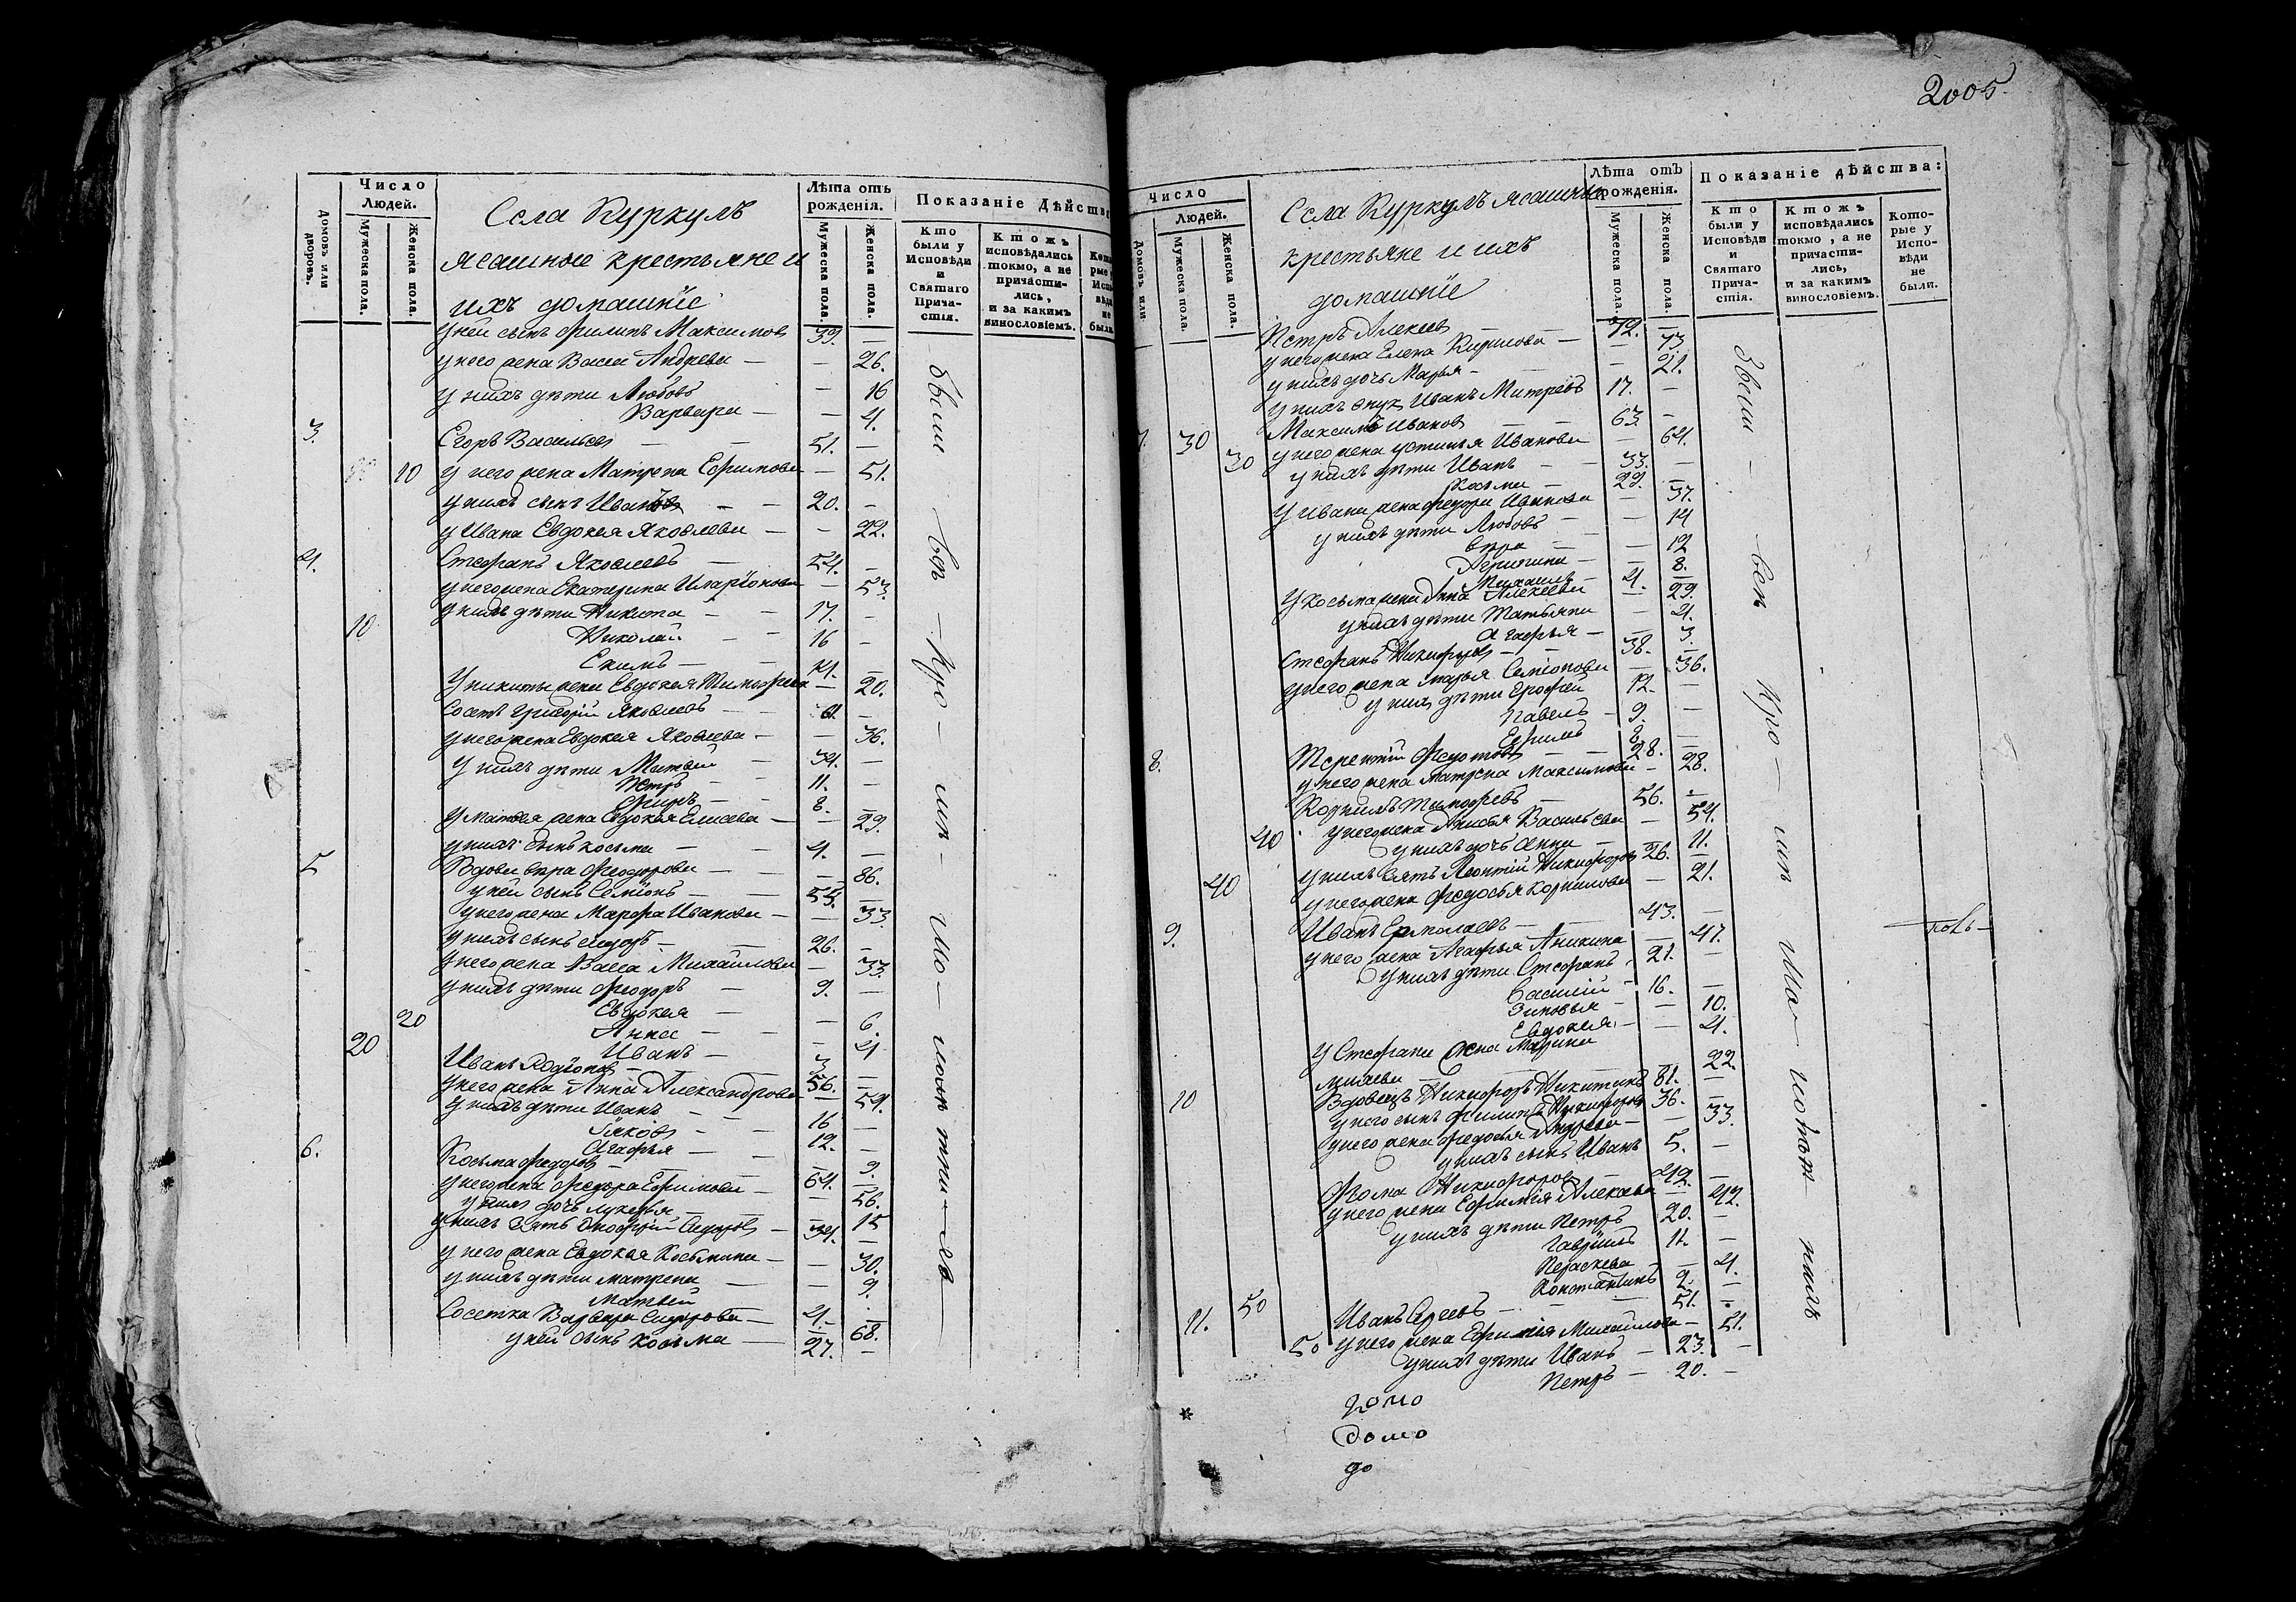 Число
Людей.
Домовъ или дворовъ.
Мужеска пола.
Женска пола.
Села Куркулъ
ясашные крестьяне и
ихъ домашніе
Лѣта отъ рожденія.
Мужеска пола.
Женска пола.
Показаніе Дѣйства
Кто были у Исповѣди и Святаго Прича-стія.
Ктожъ исповѣдались токмо, а не причасти-лись, и за какимъ винословіемъ.
У ней сынъ Филипъ Максимовъ 39. —
у него жена Васса Андреева — — 26.
у нихъ дѣти Любовь — 16
Варвара — — 4.
3. Егоръ Васильевъ — 51. —
10 у него жена Матрена Ефимова — 51.
у нихъ сынъ Иванъ — — 20. —
у Ивана Евдокея Яковлева — — 22.
4. Стефанъ Яковлевъ — 54. —
у него жена Екатерина Иларіонова — 53.
у нихъ дѣти Никита — — 17. —
10 Николай — — 16 —
Екимъ — 14. —
У Никиты жена Евдокея Тимофеева — 20.
Сосѣдъ Григорій Яковлевъ — — 61. —
у него жена Евдокея Яковлева — — 36.
У нихъ дѣти Матвей — 34. —
Петръ — 11. —
8. —
У Матвея жена Евдокея Елисева — — 29.
у нихъ сынъ Косьма — — 4. —
5 Вдова Вера Феодорова — — — 86.
у ней сынъ Семіонъ — — 55. —
у него жена Марфа Иванова — — 33
у нихъ сынъ Сидоръ — — 26. —
У него жена Васса Михайлова — 33.
у нихъ дѣти Феодоръ — 9. —
20 Евдокея — — 6.
Анна — — — 4
20 Иванъ — 3 —
Иванъ Родіоновъ — 56. —
у него жена Анна Александрова — 54.
У нихъ дѣти Иванъ — — 16 —
Іяковъ — — 12. —
Агафья — — — 9.
6. Косьма Федоровъ — — 64. —
у него жена Федора Ефимова — — 56.
у нихъ дочь Лукерья — — — 15
у нихъ зять Онофрій Сидоровъ — 34. —
у него жена Евдокея Косьмина — — 30.
у нихъ дѣти Матрена — — 9.
Матвей 4. —
Сосетка Варвара Сидорова — — 68.
у ней сынъ Косьма — 27. —
были — всѣ —
2005.
Число
Людей.
Домовъ или
Мужеска пола.
Женска пола.
Села Куркулъ ясашныя
крестьяне и ихъ
домашніе
Лѣта отъ рожденія.
Мужеска пола.
Женска пола.
Показаніе дѣйства:
Кто были у Исповѣди и Святаго Прича-стія.
Ктожъ исповѣдались токмо, а не причасти-лись, и за какимъ винословіемъ.
Кото-рые у Испо-вѣди не были.
Петръ Алексеевъ — — 72. —
у него жена Елена Кирилова — — 73
у нихъ дочь Марья — — — 21.
у нихъ внук Иванъ Митревъ 17. —
7. 30 Максимъ Ивановъ — — 63. —
30 у него жена Устинья Иванова — 64.
у нихъ дѣти Иванъ — — 33. —
Косьма — 29. —
У Ивана жена Федора Иванова — 37.
у нихъ дѣти Любовь — — 14
Вера — — 12
— 8.
Михаилъ — 4. —
У Косьмы жена Анна Алексеева — 29.
у нихъ дѣти Татьяна — 4.
Агафья — — 3.
Стефанъ Никифоровъ — — 38. —
у него жена Марья Семіонова — 36.
у нихъ дѣти Ерофей 12. —
Павелъ — 9. —
Ефимъ 8. —
8. Терентій Федотовъ — — 28. —
у него жена Матрена Максимова — 28.
Корнилъ Тимофеевъ — 56. —
40 у него жена Анисья Васильева — 54.
у нихъ дочь Анна — 11.
у нихъ зять Леонтій Никифоровъ 26. —
40 у него жена Федосья Корнилова — 21.
9. Иванъ Ермолаевъ — 43. —
у него жена Агафья Аникина — 47.
у нихъ дѣти Стефанъ, 21. —
Василій — 16. —
Зиновья — — 10.
Евдокея, — — 4.
У Стефана жена Марина
— 22.
10 Вдовецъ Никифоръ Никитинъ 81. —
у него сынъ Филипъ Никифоровъ 36. —
у него жена Федосья Андреева — — 33.
у нихъ сынъ Иванъ 5. —
Фома Никифоровъ — 42. —
у него жена Ефимія Алексеева — 42.
у нихъ дѣти Петръ 20. —
Гаврилъ 11. —
Параскева — — 4.
Константинъ 2. —
11. 50 Иванъ Сергеевъ — — — 51. —
50 у него жена Ефимія Михайлова — 51.
у нихъ дѣти Иванъ — 23. —
Петръ — 20. —
домо
домо
до